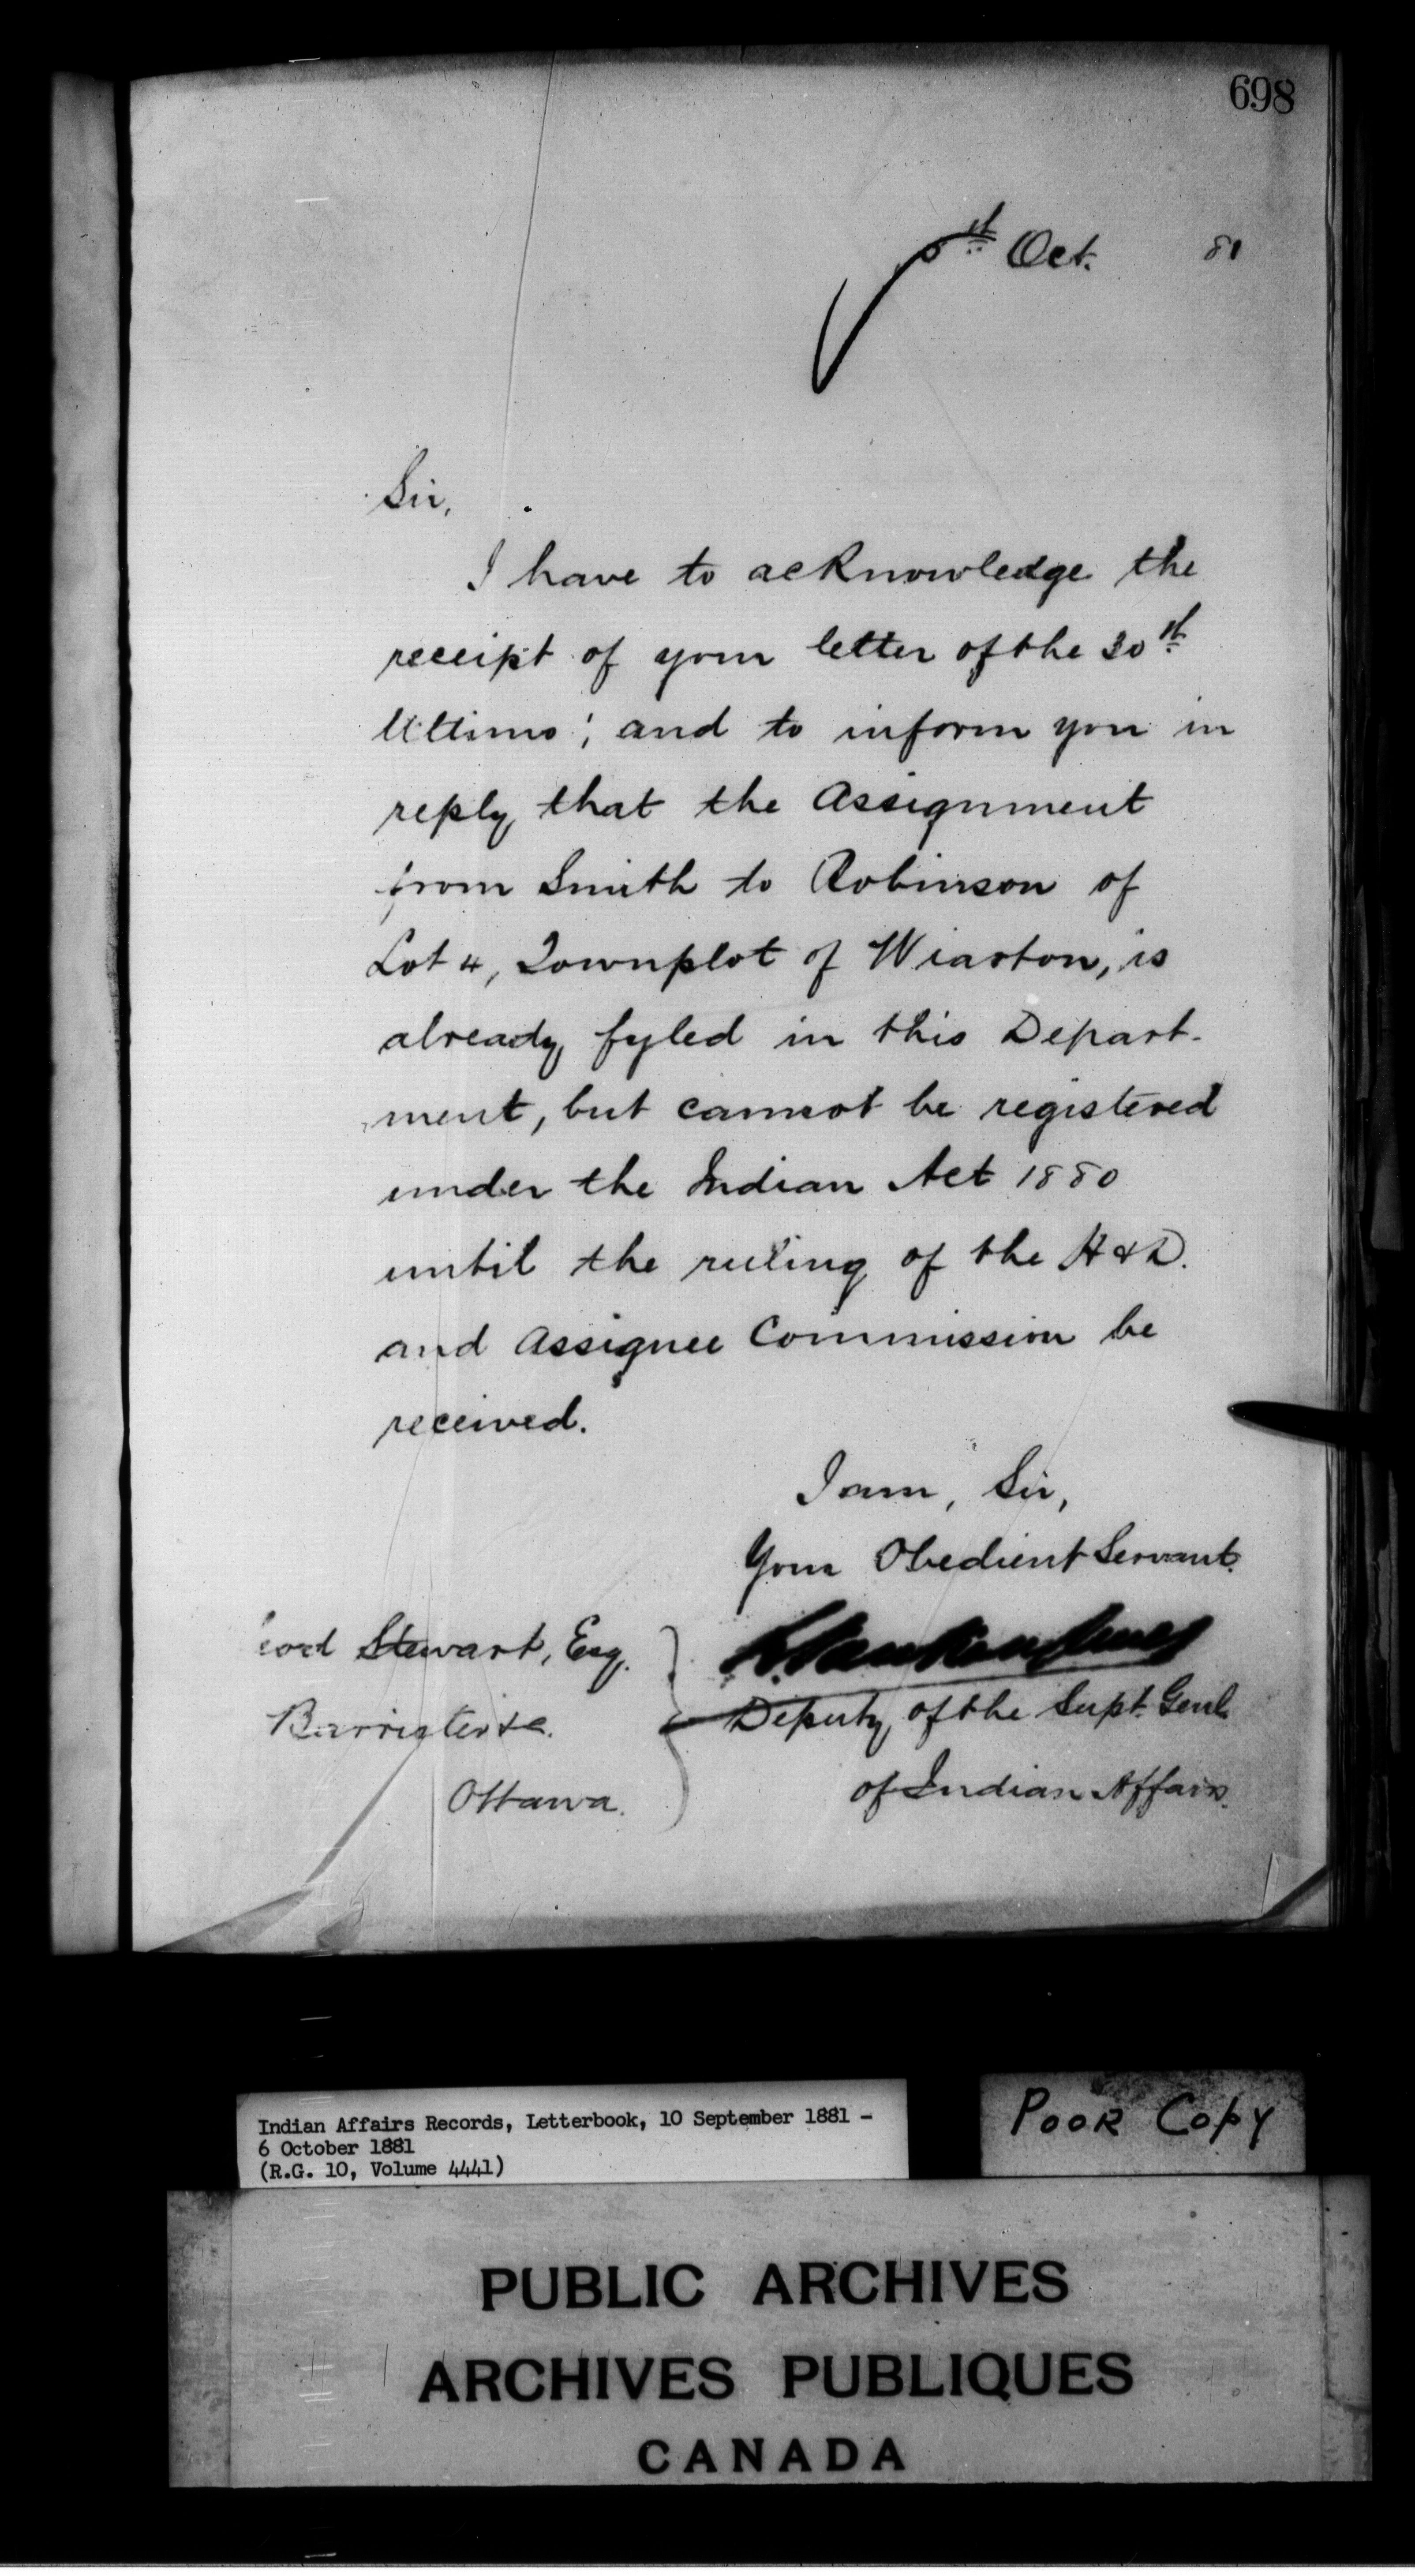 698
Oct. 81
Sir,
I have to acknowledge the
receipt of your letter of the 30th
Ultimo; and to inform you in
reply that the Assignment
from Smith to Robinson of
Lot 4, Townplot of Wiarton, is
already fyled in this Depart-
ment, but cannot be registered
under the Indian Act 1880
until the ruling of the H & D.
and Assignee Commission be
received.
I am, Sir,
Your Obedient Servant.
Stewart, Esq.
Deputy of the Supt. Genl.
Barrister &c.
of Indian Affairs.
Ottawa.
Indian Affairs Records, Letterbook, 10 September 1881 -
6 October 1881
(R.G. 10, Volume 4441)
POOR COPY
PUBLIC ARCHIVES
ARCHIVES PUBLIQUES
CANADA